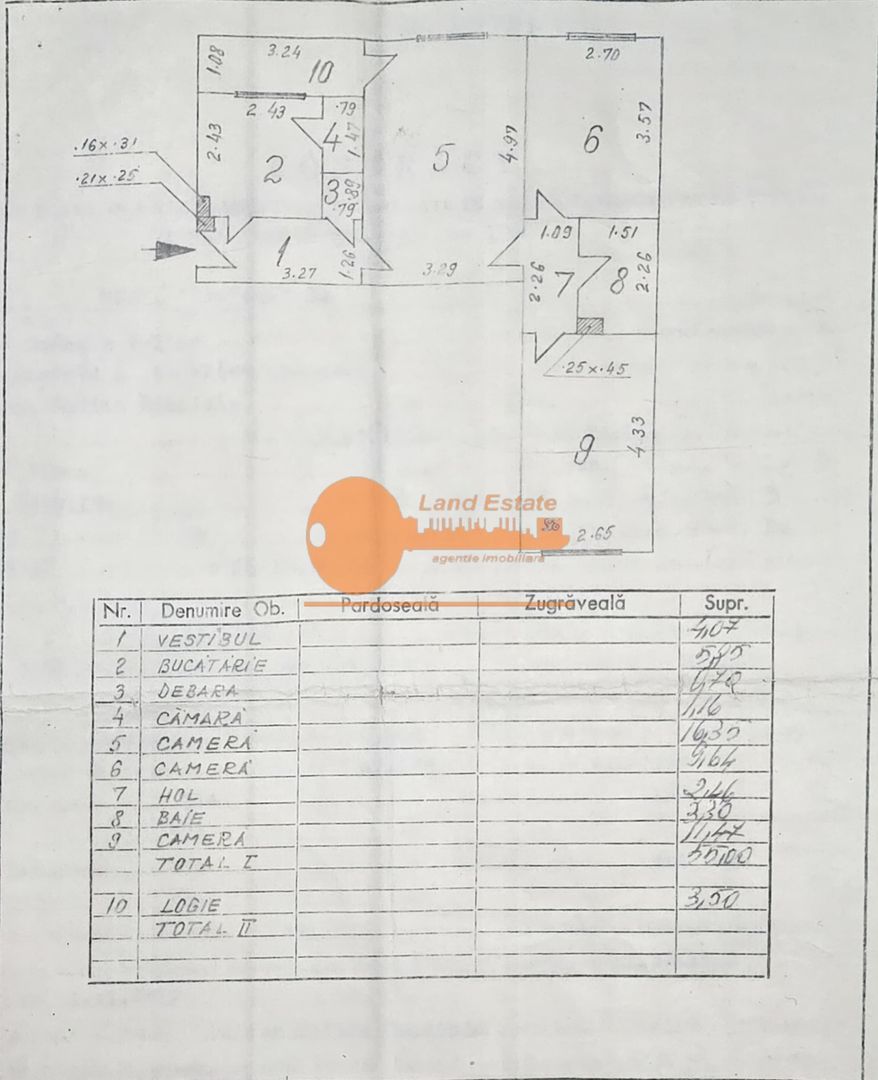 3.24
2.70
1.08
10
2.43
.79
4
1.47
2.43
2
5
4.97
6
3.57
.16x.31
.21x.25
3
.89
.79
1.09
1.51
1
1.26
3.27
3.29
2.26
7
8
2.26
.25x.45
9
4.33
2.65
Land Estate
agentie imobiliara
Nr. Denumire Ob. Pardoseală Zugrăveală Supr.
1 VESTIBUL 4,07
2 BUCĂTĂRIE 5,85
3 DEBARA 0,70
4 CĂMARĂ 1,16
5 CAMERĂ 16,35
6 CAMERĂ 9,64
7 HOL 2,46
8 BAIE 3,30
9 CAMERĂ 11,47
TOTAL I 55,00
10 LOGIE 3,50
TOTAL II